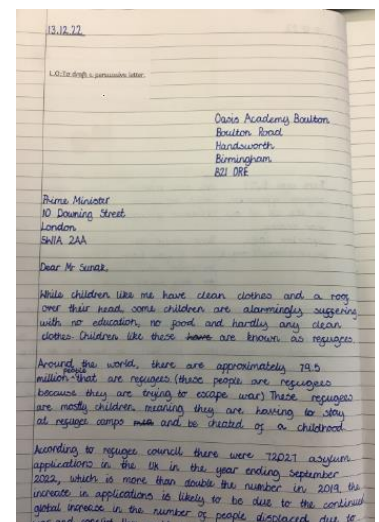 13.12.22
L.O: To draft a persuasive letter.
Oasis Academy Boulton
Boulton Road
Handsworth
Birmingham
B21 0RE
Prime Minister
10 Downing Street
London
SW1A 2AA
Dear Mr Sunak,
While children like me have clean clothes and a roof
over their head, some children are alarmingly suffering
with no education, no food and hardly any clean
clothes. Children like these have are known as refugees.
Around the world, there are approximately 79.5
million people that are refugees (these people are refugees
because they are trying to escape war) These refugees
are mostly children meaning they are having to stay
at refugee camps and be cheated of a childhood.
According to refugee council there were 72,027 asylum
applications in the UK in the year ending September
2022, which is more than double the number in 2019, the
increase in applications is likely to be due to the continued
global increase in the number of people displaced due to